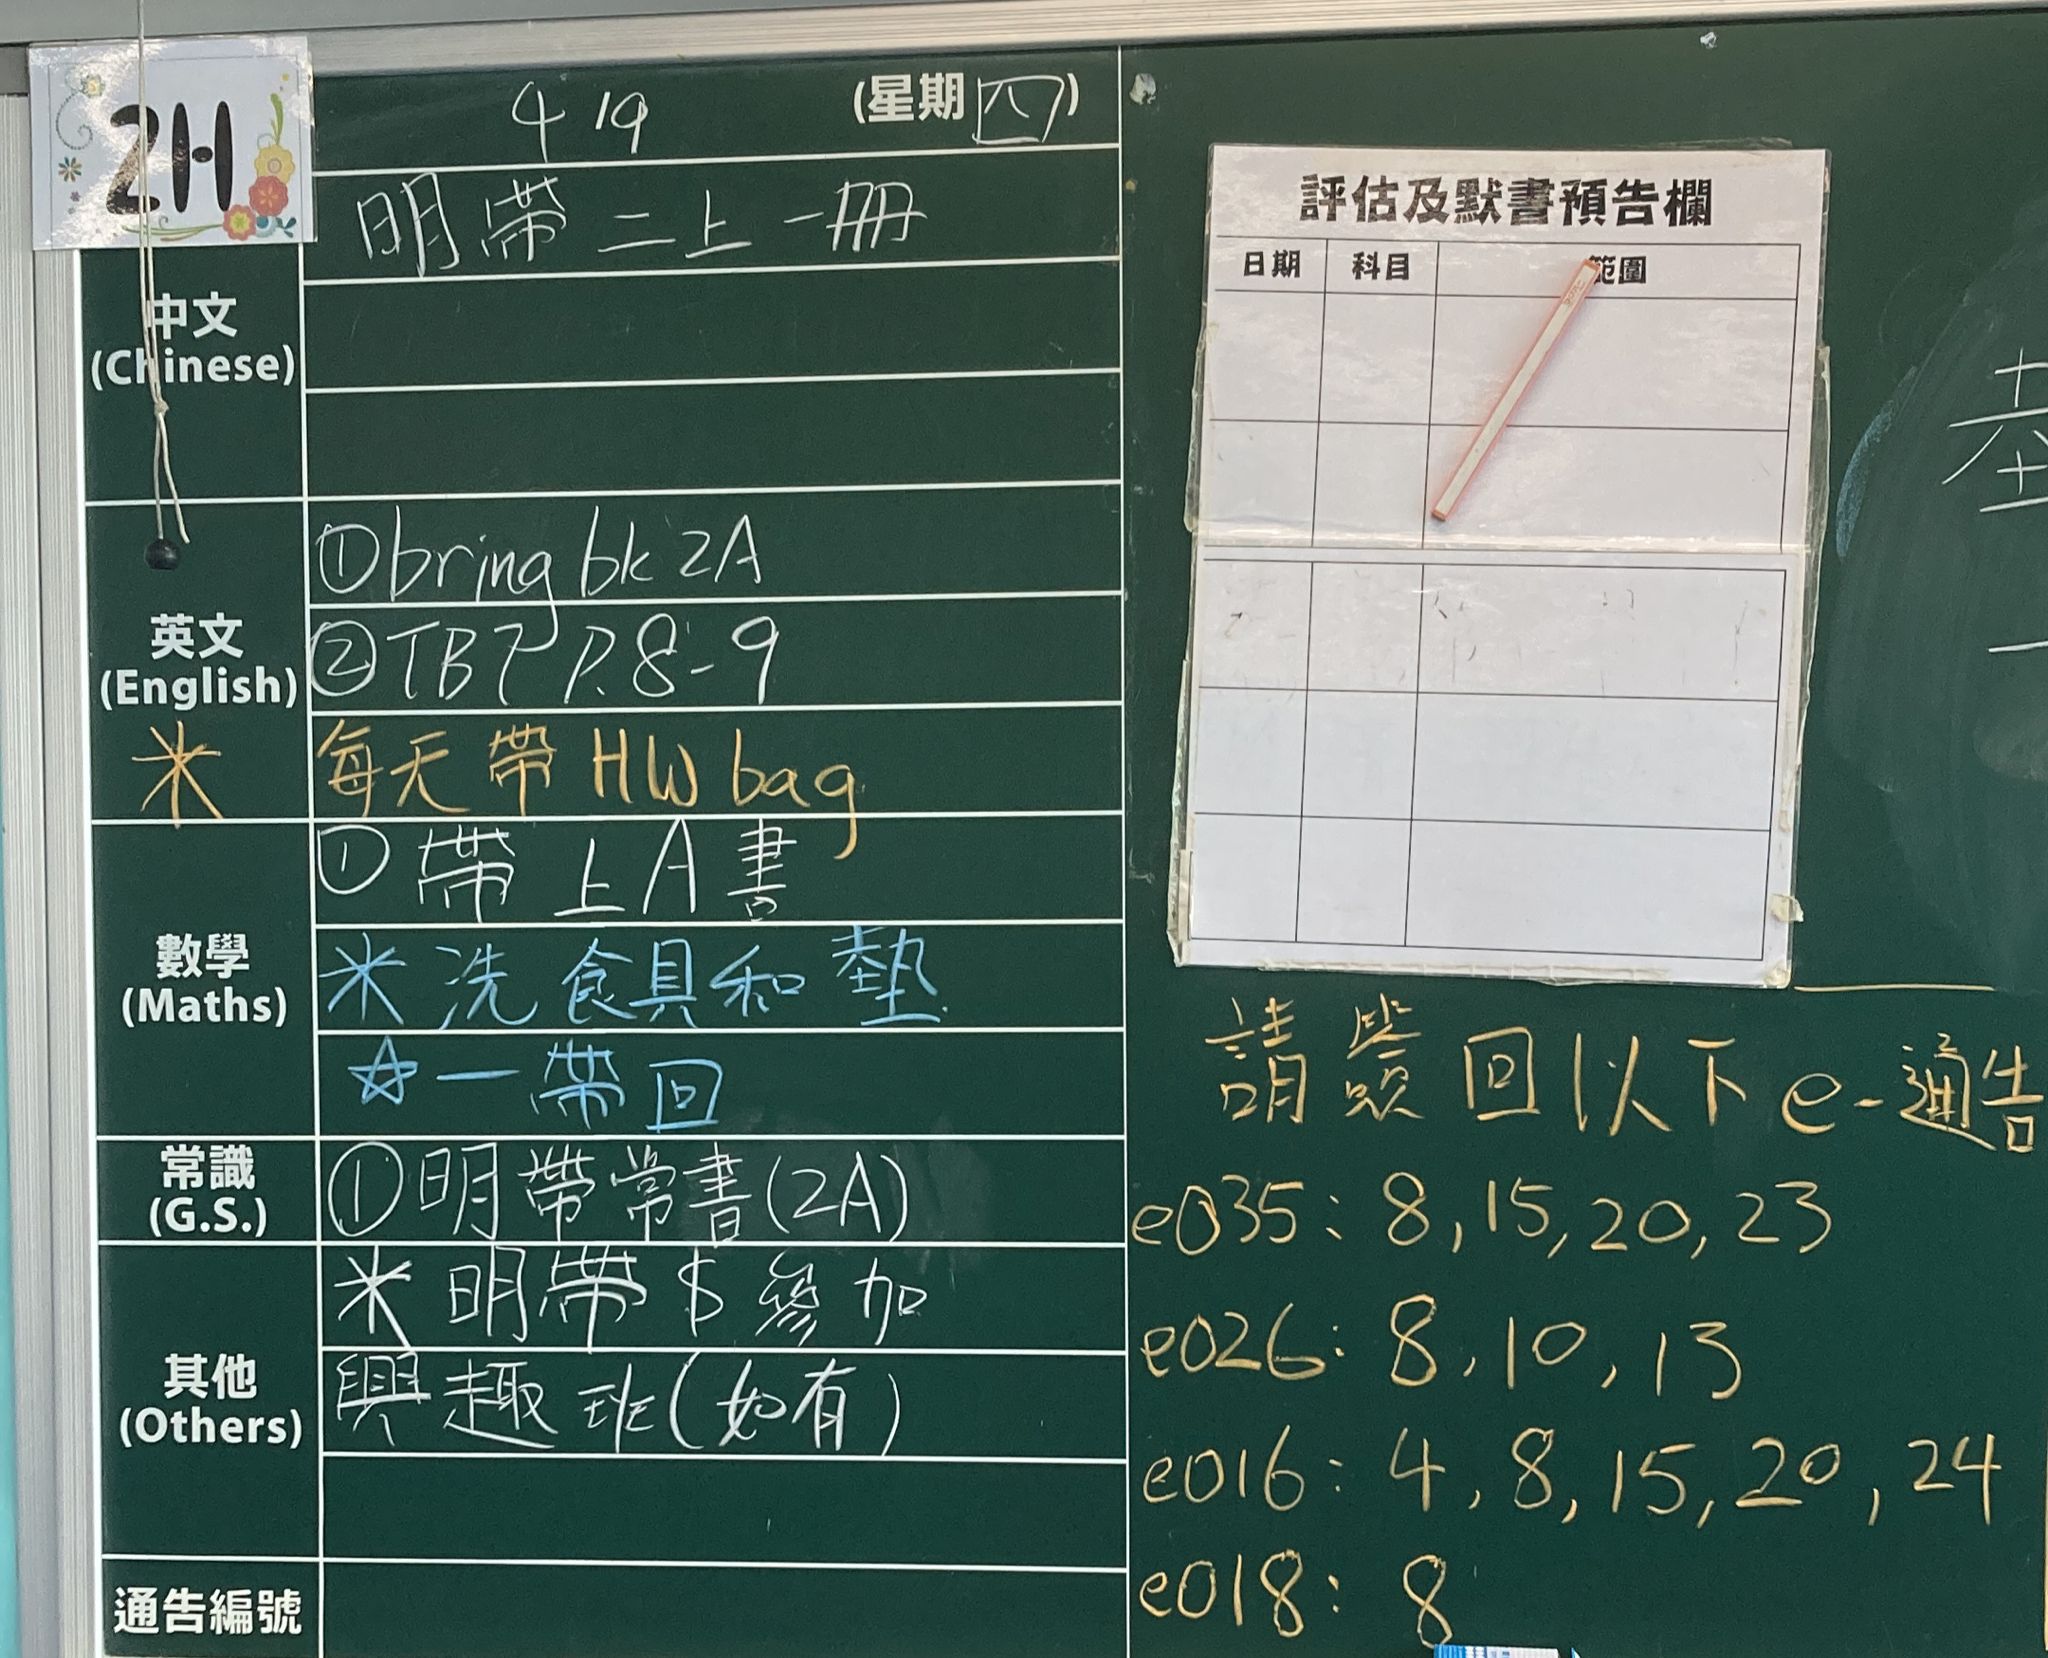 2H
4 19 (星期四)
明帶二上一冊
中文
(Chinese)
① bring bk 2A
② TBT P.8-9
英文
(English)
米 每天帶 HW bag
① 帶上A書
米洗食具和墊
☆一帶回
數學
(Maths)
常識
(G.S.)
① 明帶常書(2A)
米明帶$參加
興趣班(如有)
其他
(Others)
通告編號
評估及默書預告欄
日期 科目 範圍
請簽回以下e-通告
e035: 8, 15, 20, 23
e026: 8, 10, 13
e016: 4, 8, 15, 20, 24
e018: 8